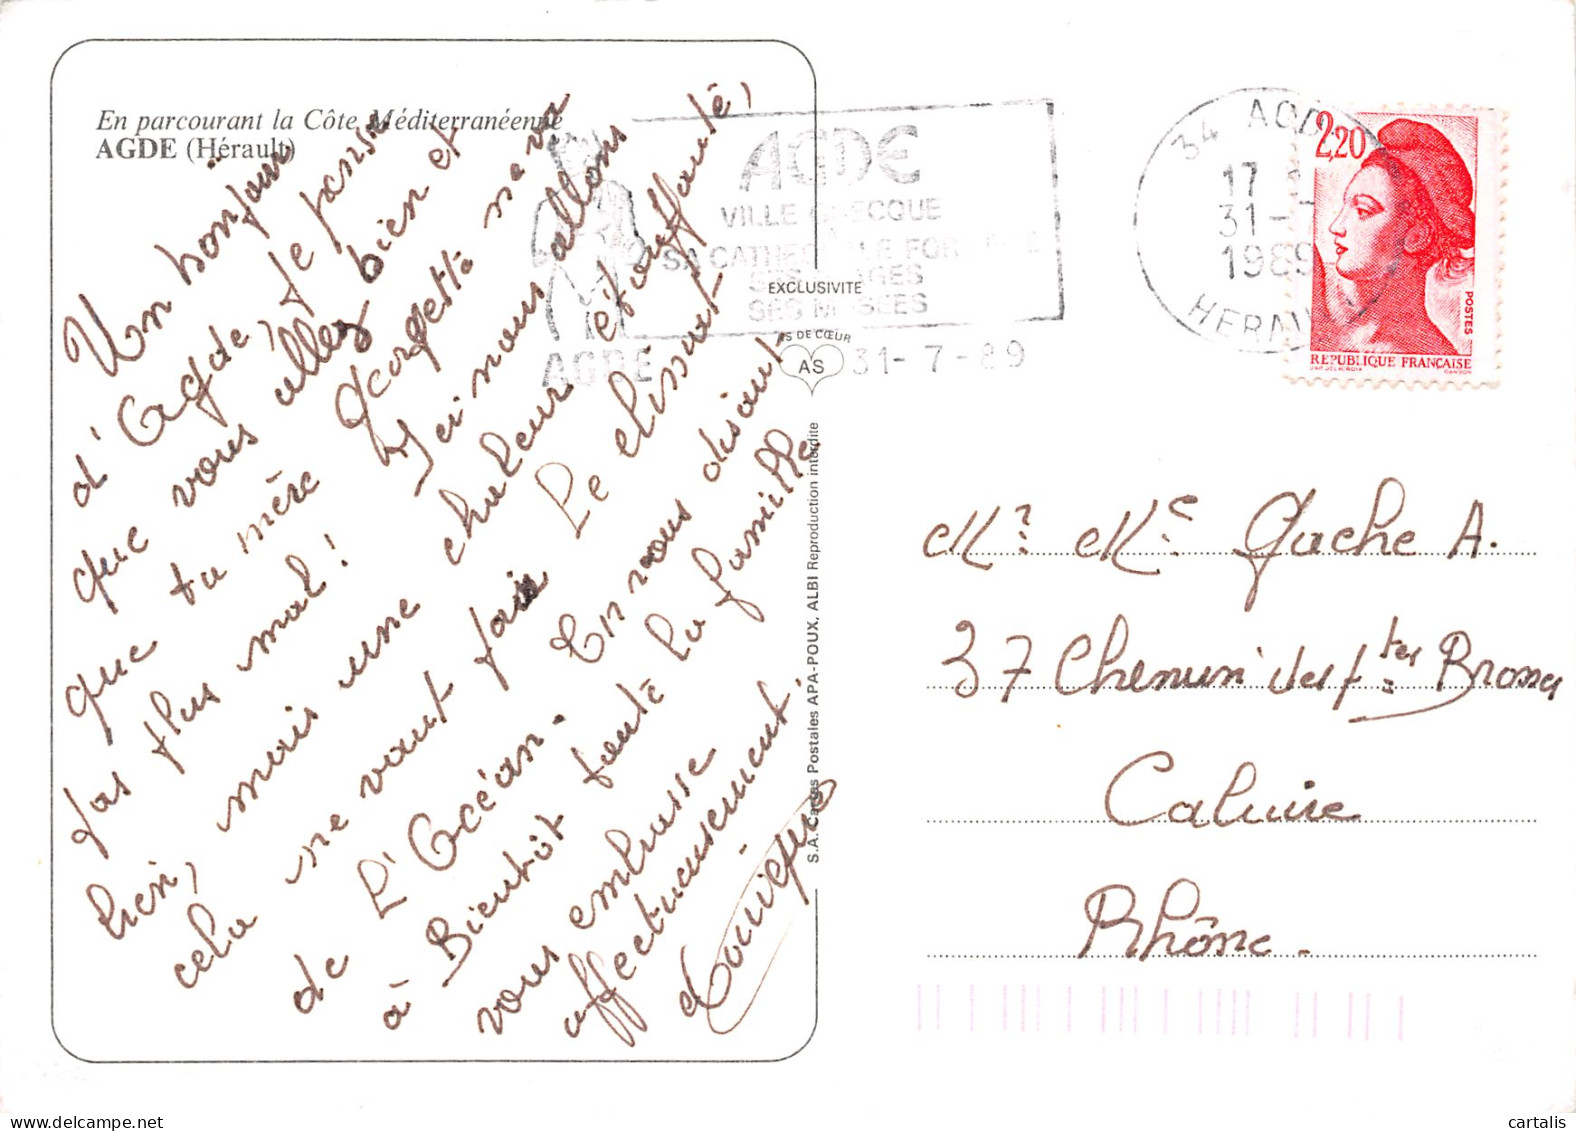 En parcourant la Côte Méditerranéenne
AGDE (Hérault)
Un bonjour
d'Agde, je pense
que vous allez bien et
que ta mère Georgette ne va
pas plus mal! Ici nous allons
bien, mais une chaleur étouffante,
cela ne vaut pas le climat
de L'Océan. En vous disant
à Bientôt toute la famille
vous embrasse
affectueusement.
AGDE
VILLE GRECQUE
SA CATHEDRALE FORTIFIEE
SES PLAGES
SES MUSEES
AGDE
31-7-89
34 AGDE
17
31-
1989
HERAULT
2,20
POSTES
REPUBLIQUE FRANÇAISE
EXCLUSIVITE
AS DE CŒUR
AS
S.A. Cartes Postales APA-POUX, ALBI Reproduction interdite
Mr Me Gache A.
37 Chemin des ptes Brosses
Caluire
Rhône.
cartalis